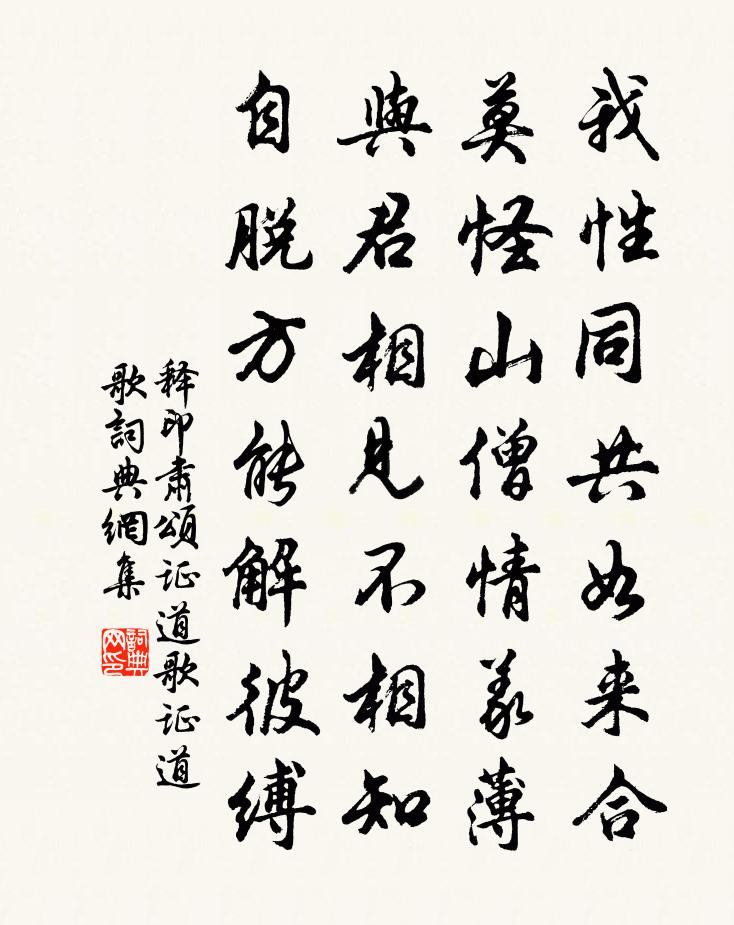 我性同共如来合
莫怪山僧情義薄
與君相見不相知
自脱方能解彼縛
释印肃頌证道歌证道
歌詞典網集
詞典网印